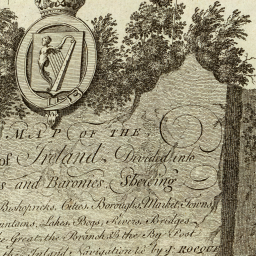 MAP OF THE
of Ireland Divided into
and Baronies Shewing
Bishopricks, Cities, Boroughs, Market Towns,
Lakes, Bogs, Rivers, Bridges,
the Great, the Branch & the By Post
Inland Navigation &c by J. ROCQUE